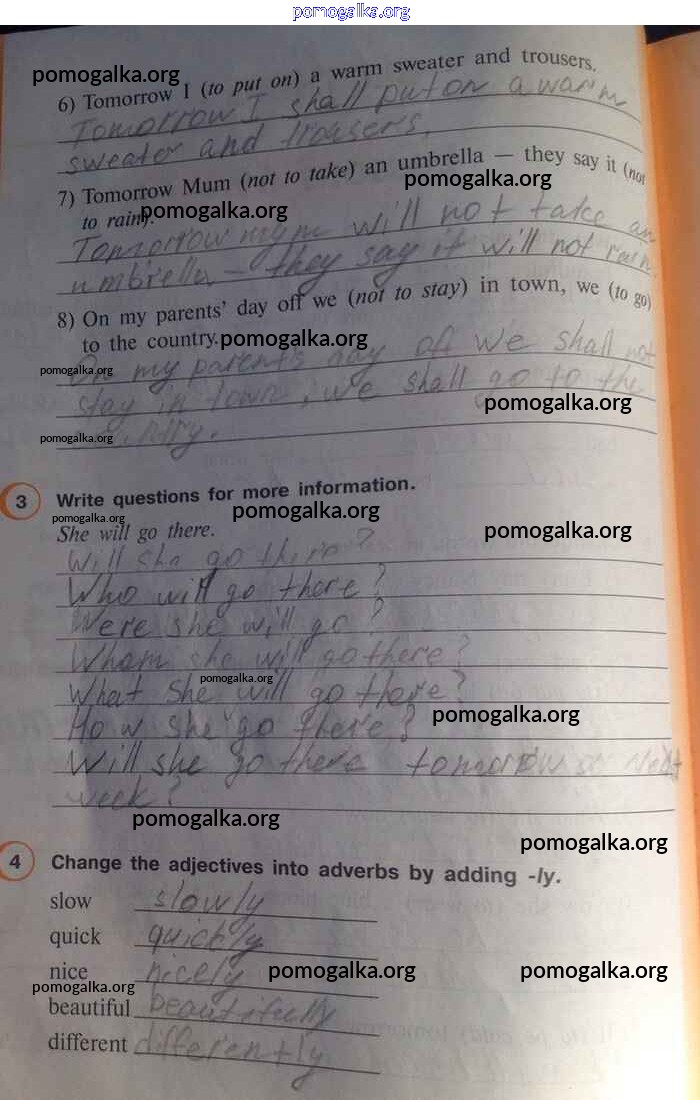 pomogalka.org
6) Tomorrow I (to put on) a warm sweater and trousers.
pomogalka.org
Tomorrow I shall put on a warm
sweater and trousers.
7) Tomorrow Mum (not to take) an umbrella — they say it (not
pomogalka.org
to rain).
pomogalka.org
Tomorrow mym will not take an
umbrella – they say it will not rain.
8) On my parents' day off we (not to stay) in town, we (to go)
to the country.
pomogalka.org
pomogalka.org
On my parent's day off we shall not
stay in town, we shall go to the
pomogalka.org
pomogalka.org
3 Write questions for more information.
pomogalka.org
pomogalka.org
She will go there.
pomogalka.org
Will she go there?
Who will go there?
Were she will go?
Whom she will go there?
pomogalka.org
What She will go there?
How she go there?
pomogalka.org
Will she go there tomorrow or next
week?
pomogalka.org
pomogalka.org
4 Change the adjectives into adverbs by adding -ly.
slow slowly
quick quickly
nice nicely
pomogalka.org
pomogalka.org
pomogalka.org
beautiful beautifully
different differently